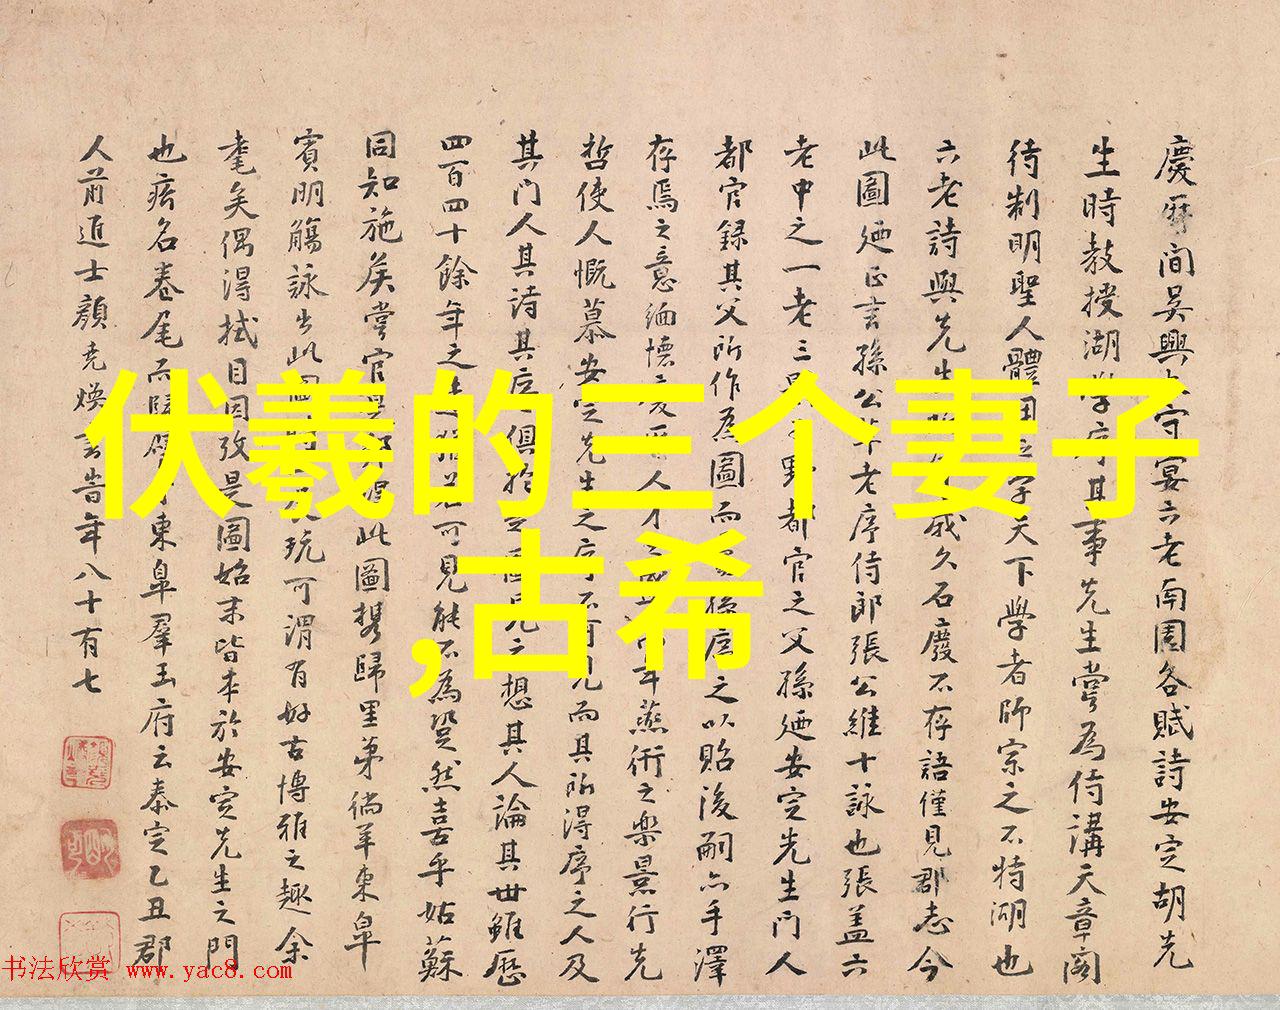 慶曆間吳興太守宴六老南園各賦詩安定胡先
生時教授湖學序其事先生嘗為侍講天章閣
待制明聖人體用之學天下學者師宗之不特湖也
六老詩與先生
歲久石廢不存語僅見郡志今
此圖廼正言孫公
老序侍郎張公維十詠也張蓋六
老中之一老三
都官之父孫廼安定先生門人
都官録其父所作為圖而
孫序之以貽後嗣亦手澤
存焉之意緬懷
蕪術之樂景行先
哲使人慨慕安定先生之序不可見而其所得序之人及
其門人其詩其序俱於
圖見之想其人論其世雖歷
四百四十餘年之
可見能不為
然喜乎姑蘇
同知施矦嘗官
此圖攜歸里第徜羊東皐
賓明觴詠出此圖
玩可謂有好古博雅之趣余
耄矣偶得拭目因攷是圖始末皆本於安定先生之門
也
名卷尾而歸
東皐羣玉府云泰定乙丑郡
人前進士顏堯煥書告年八十有七
伏羲的三个妻子
,古希
书法欣赏 www.yac8.com